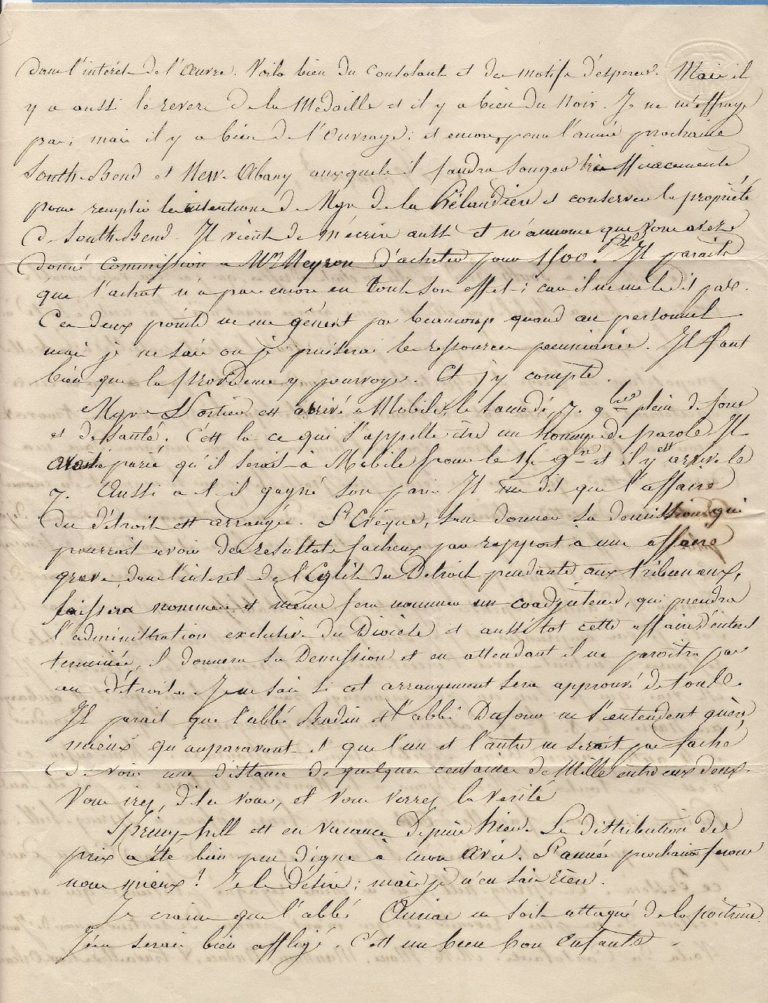 dans l'intérêt de l'œuvre. Voila bien du consolant et des motifs d'espérer. Mais il
y a aussi le revers de la Medaille et il y a bien du noir. Je ne m'effraye
pas; mais il y a bien de l'ouvrage; et encore, pour l'année prochaine
South-Bend et New-Albany auxquels il faudra songer
pour remplir les intentions de Mgr de la hélandière et conserver la propriété
de South-Bend. Il vient de m'écrire aussi et m'annonce que vous avez
donné commission à Mr Neyron d'acheter pour 1100 Il parait
que l'achat n'a pas encore eu tout son effet; car il ne me le dit pas.
Ces deux points ne me gênent pas beaucoup quand au personnel
mais je ne sais ou je puiserai les ressources pecuniaires. Il faut
bien que la providence y pourvoye. Et j'y compte.
Mgr Portier est arrivé à Mobile, le Samedi 7. 9bre plein de joie
et de santé. C'est la ce qui s'appelle être un homme de parole. Il
avait parié qu'il serait à Mobile pour le 15 9bre et il y est arrivé le
7. Aussi a t il gagné son pari. Il me dit que l'affaire
du détroit est arrangée. L'Evêque, sans donner sa demission qui
pourrait avoir des resultats facheux par rapport à une affaire
grave dans l'interet de l'Eglise du Detroit pendante aux tribunaux,
laissera nommer et même fera nommer un coadjuteur, qui prendra
l'administration exclusive du Diocèse et aussitot cette affaire d'interet
terminée, il donnera sa Demission et en attendant il ne paroitra pas
au détroit. Je ne sais si cet arrangement sera approuvé de tous.
Il parait que l'abbé Badin et l'abbé ne s'entendent guère
mieux qu'auparavant et que l'un et l'autre ne serait pas faché
de voir une distance de quelques centaines de Milles entre eux deux.
Vous irez, dites vous, et vous verrez la verité
Spring-hill est en vacance depuis hier. La distribution des
prix a été bien peu digne à mon avis. L'année prochaine ferons
nous mieux? Je le désire; mais je n'en sais rien.
Je crains que l'abbé ne soit attaqué de la poitrine
J'en serais bien affligé. C'est un bien bon enfant.